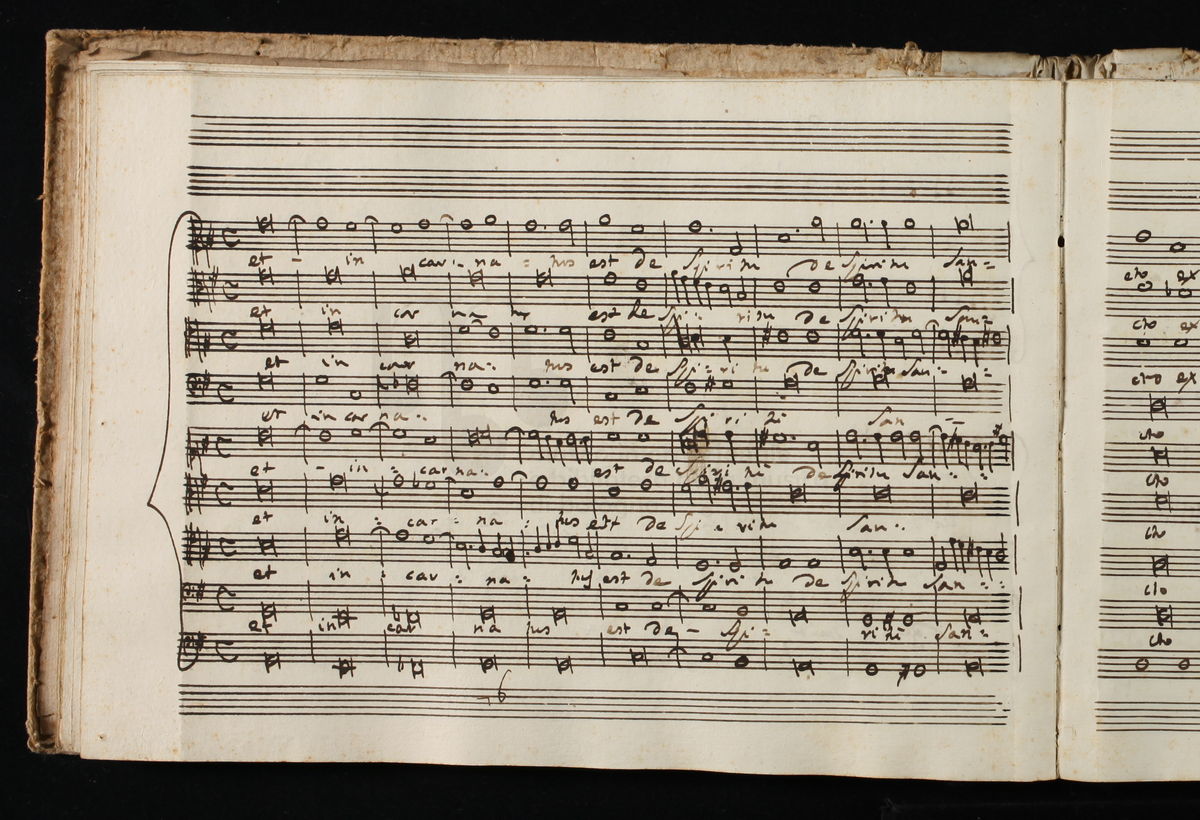 et - in car - na - tus est de Spiritu de Spiritu San =
et in car na tus est de Spi - ritu de Spiritu San =
et in car na - tus est de Spi - ri tu de Spiritu San - =
et in car na - tus est de Spi ri tu San - -
et - in - car na - est de Spiri tu de Spiritu San - -
et in - car - na - tus est de Spi - ritu San -
et in - car - na - tus est de Spiri tu de Spiritu San - -
et in car na tus est de - Spi - ritu San =
6
cto ex
cto ex
cto ex
cto
cto
cto
cto
cto